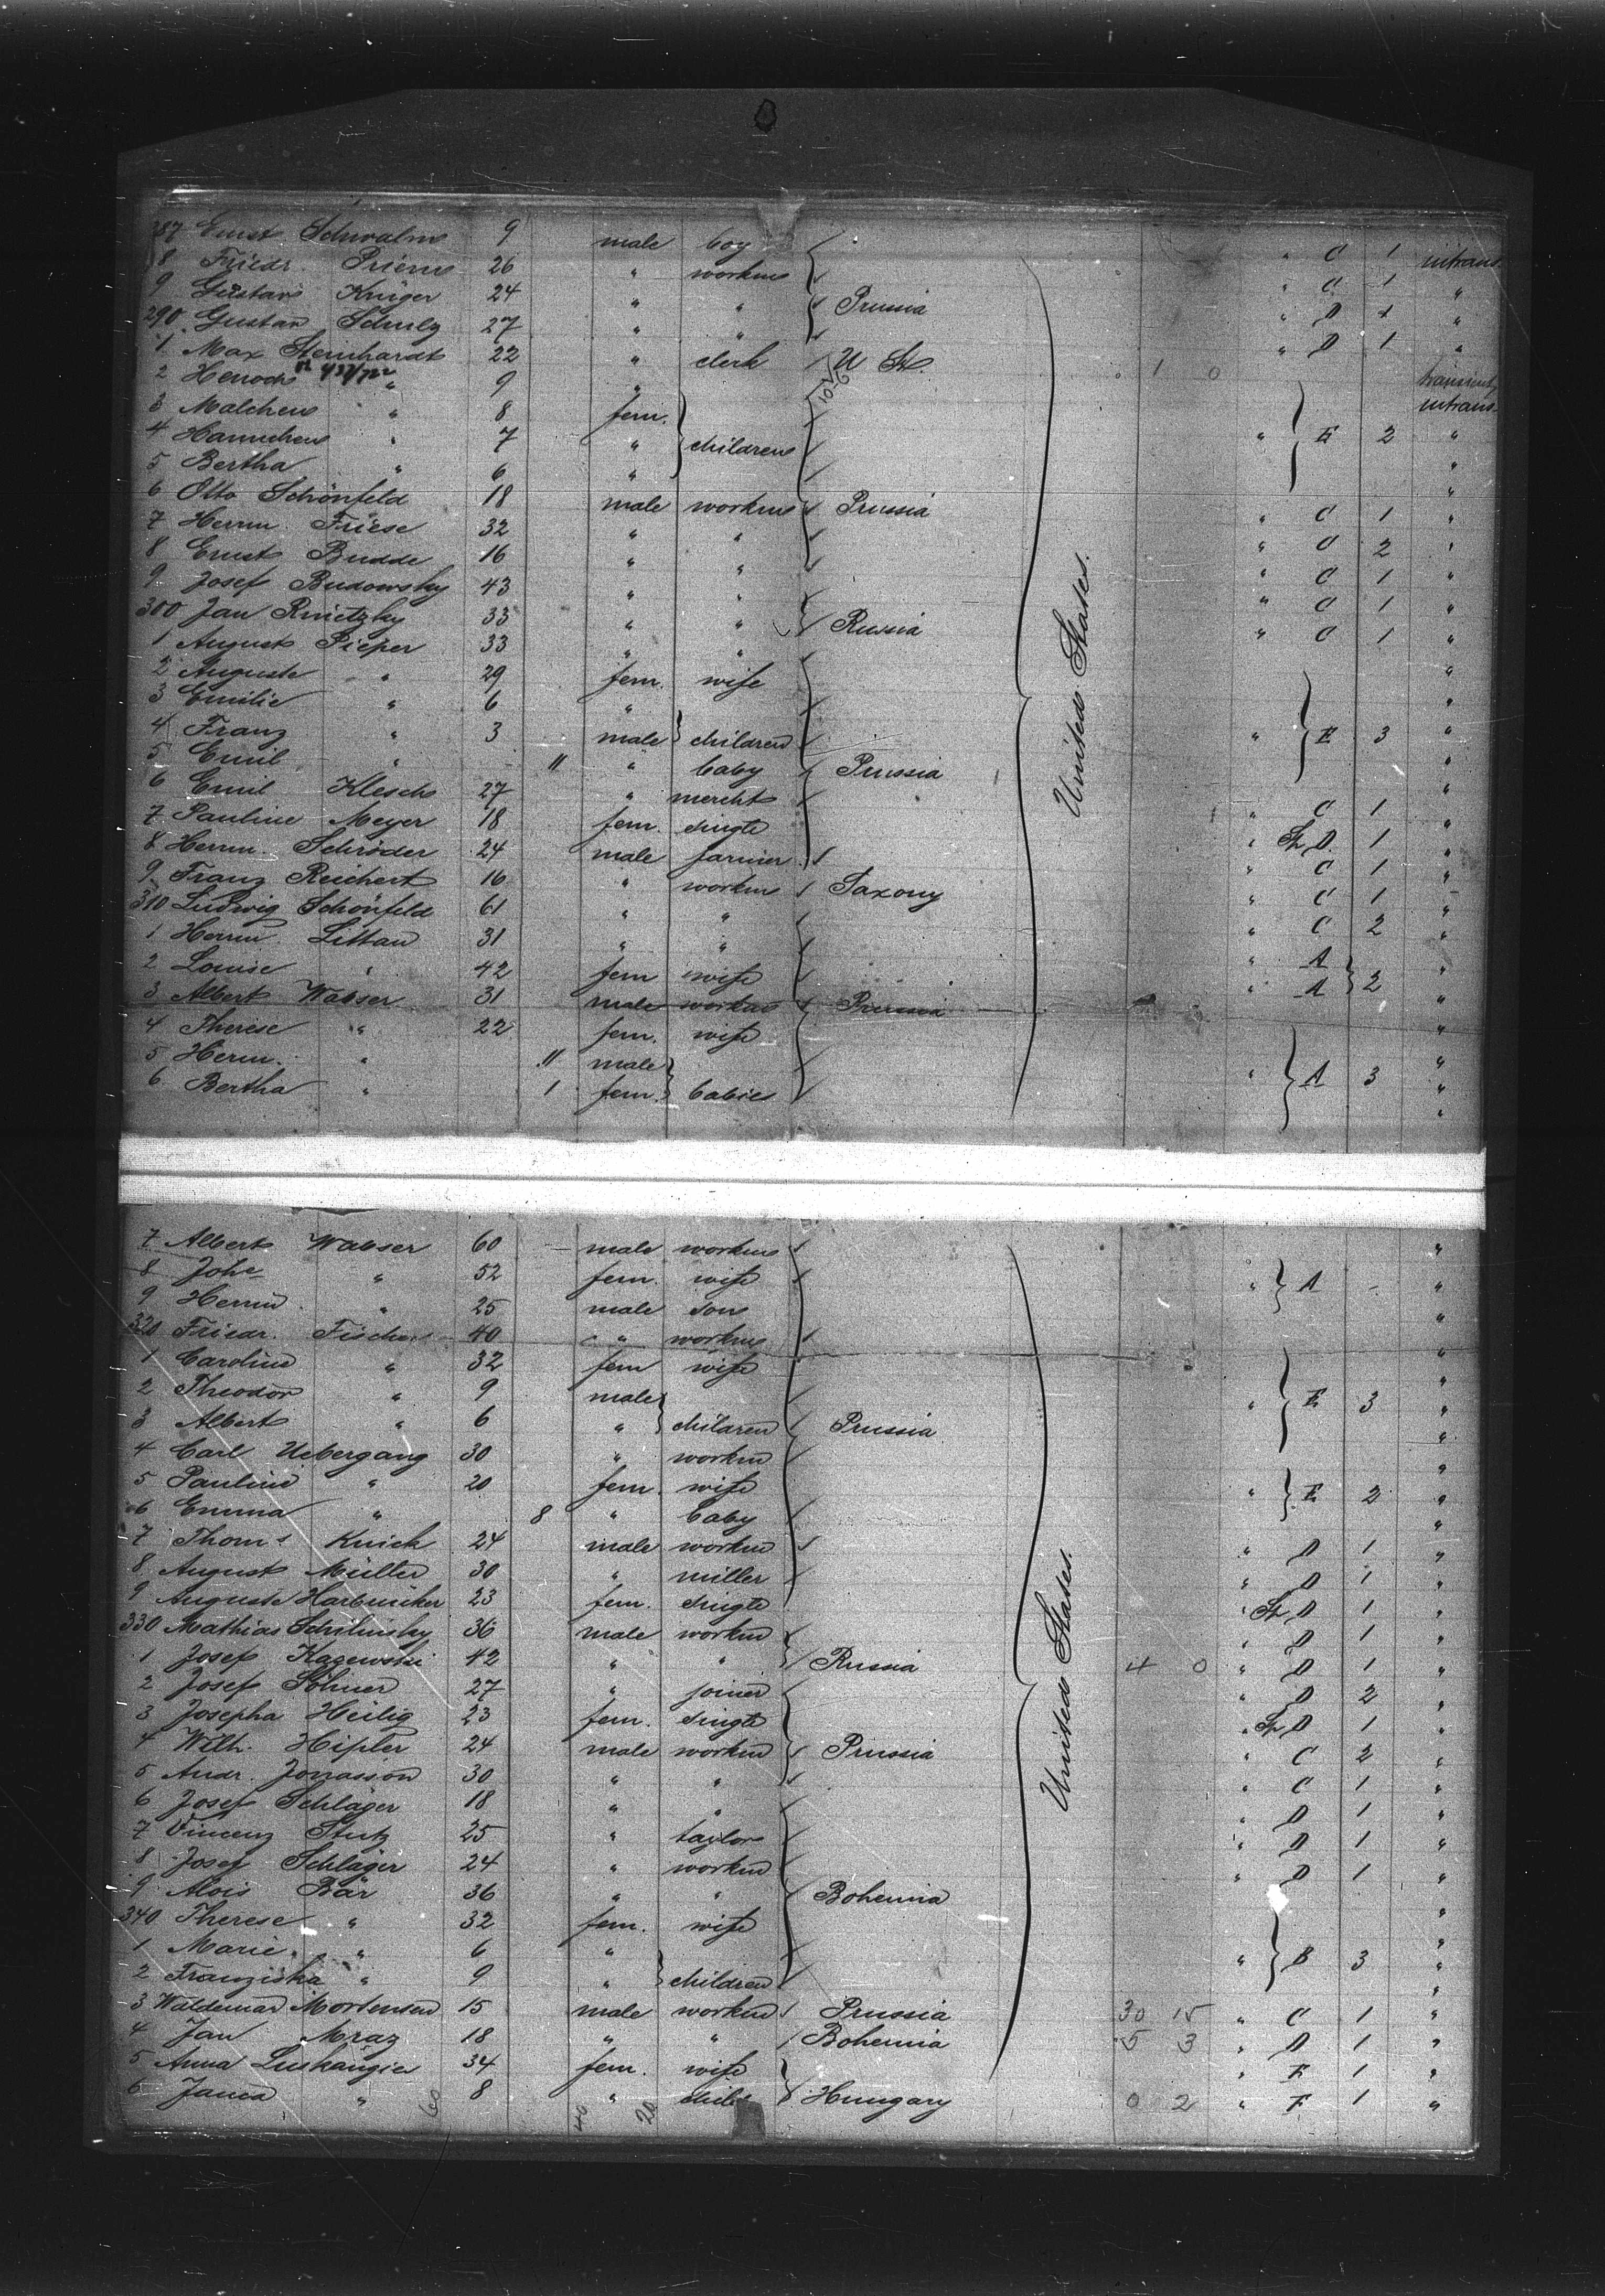 287 Ernst Schwalm 9 male boy " C 1 intrans.
8 Friedr. Priem 26 " workm " C 1 "
9 Gustav Krüger 24 " " Prussia " D 1 "
290 Gustav Schulz 27 " " " D 1 "
1 Max Steinhardt 22 " clerk U St. 1 0 transient
2 Henoch " 9 " intrans.
3 Malchen " 8 fem.
4 Hannchen " 7 " children " E 2 "
5 Bertha " 6 " "
6 Otto Schönfeld 18 male workm Prussia " C 1 "
7 Herrm. Friese 32 " " " C 2 "
8 Ernst Budde 16 " " " C 1 "
9 Josef Budowsky 43 " " " C 1 "
300 Jan Rnietzky 33 " " Russia " C 1 "
1 August Pieper 33 " " "
2 Auguste " 29 fem. wife "
3 Emilie " 6 " "
4 Franz " 3 male children " E 3 "
5 Emil " 11 " baby Prussia "
6 Emil Klesch 27 " mercht " C 1 "
7 Pauline Meyer 18 fem. single " St. D. 1 "
8 Herrm. Schröder 24 male farmer " C 1 "
9 Franz Reichert 16 " workm Saxony " C 1 "
310 Ludwig Schönfeld 61 " " " C 2 "
1 Herrm. Littau 31 " " " A "
2 Louise " 42 fem wife " A 2 "
3 Albert Wabser 31 male workm Prussia "
4 Therese " 22 fem. wife "
5 Herm. " 11 male " A 3 "
6 Bertha " 1 fem. babies "
United States.
7 Albert Wabser 60 male workm "
8 Johe " 52 fem. wife " A "
9 Herrm. " 25 male son "
320 Friedr. Fischer 40 " workm "
1 Caroline " 32 fem wife "
2 Theodor " 9 male " E 3 "
3 Albert " 6 " children Prussia "
4 Carl Uebergang 30 " workm "
5 Pauline " 20 fem. wife " E 2 "
6 Emma " 8 " baby "
7 Thoms Knick 24 male workm " D 1 "
8 August Müller 30 " miller " D 1 "
9 Auguste 23 fem. single " St. D 1 "
330 Mathias Schilinsky 36 male workm " D 1 "
1 Josef Kagewski 42 " " Russia 4 0 " D 1 "
2 Josef Söhner 27 " joiner " D 2 "
3 Josepha Heilig 23 fem. single " St. D 1 "
4 Wilh. Hipler 24 male workm Prussia " C 2 "
5 Andr. Jonasson 30 " " " C 1 "
6 Josef Schläger 18 " " " D 1 "
7 Vincenz Stutz 25 " taylor " D 1 "
8 Josef Schläger 24 " workm " D 1 "
9 Alois Bär 36 " " Bohemia "
340 Therese " 32 fem. wife "
1 Marie " 6 " " B 3 "
2 Franziska " 9 " children "
3 Waldemar Mortensen 15 male workm Prussia 30 15 " C 1 "
4 Jan Mraz 18 " " Bohemia 5 3 " D 1 "
5 Anna 34 fem. wife " E 1 "
6 " 8 " child Hungary 0 2 " E 1 "
United States.
60 40 20